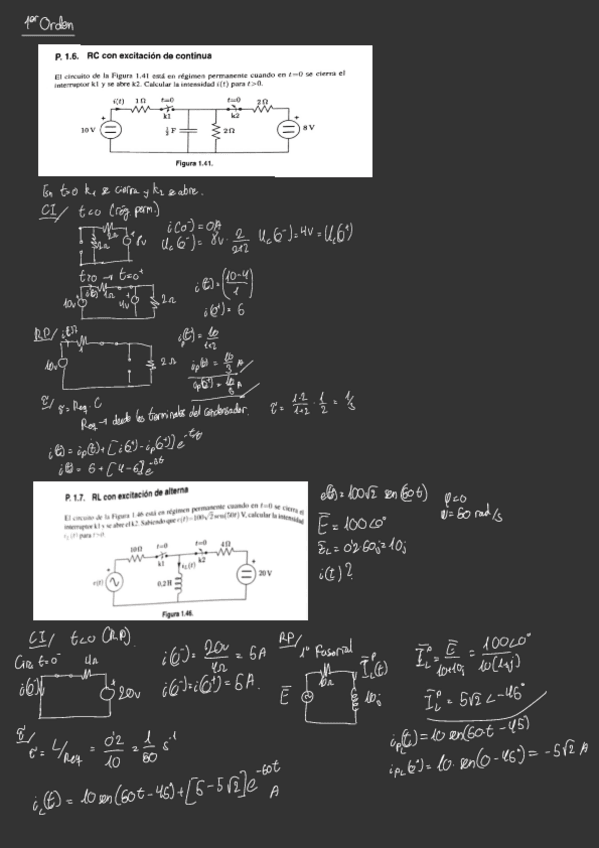 1er Orden
P. 1.6. RC con excitación de continua
El circuito de la Figura 1.41 está en régimen permanente cuando en t=0 se cierra el
interruptor k1 y se abre k2. Calcular la intensidad i(t) para t>0.
i(t) 1Ω t=0 t=0 2Ω
k1 k2
10 V 2Ω 8 V
Figura 1.41.
En t=0 k1 se cierra y k2 se abre.
CI/ t<0 (rég. perm.)
i(0⁻)=0A
Uc(0⁻)= 8v · 2/(2+2) Uc(0⁻)=4v=Uc(0⁺)
t>0 → t=0⁺
10v i(t) 1Ω 4v 2Ω
i(t)=(10-4/1)
i(0⁺)= 6
R.P./
10v 2Ω
ip(t)=10/(1+2)
ip(t)=10/3 A
ip(0⁺)=10/3 A
τ/ τ=Req·C
Req → desde los terminales del condensador.
τ = (1·2)/(1+2) · 1/2 = 1/3
i(t)=ip(t)+[i(0⁺)-ip(0⁺)]e^(-t/τ)
P. 1.7. RL con excitación de alterna
El circuito de la Figura 1.46 está en régimen permanente cuando en t=0 se cierra el
interruptor k1 y se abre el k2. Sabiendo que e(t)=100√2 sen(50t) V, calcular la intensidad
iL(t) para t>0.
10Ω t=0 t=0 4Ω
k1 iL(t) k2
e(t) 0,2H 20 V
Figura 1.46.
e(t)=100√2 sen(50t) φ=0
Ē=100∠0° ω=50 rad/s
Z̄L=0'2·50j=10j
i(t)?
CI/ t<0 (R.P).
Circ. t=0⁻ 4Ω
i(0⁻) 20v
i(0⁻)=20v/4Ω=5A
i(0⁻)=i(0⁺)=5A.
R.P/ 1º Fasorial
10Ω
Ē 10j
ĪLᵖ=Ē/(10+10j)=100∠0°/10(1+j)
ĪLᵖ=5√2∠-45°
ipL(t)=10 sen(50t-45)
ipL(0⁺)=10·sen(0-45°)=-5√2 A
τ/
τ=L/Req=0'2/10=1/50 s⁻¹